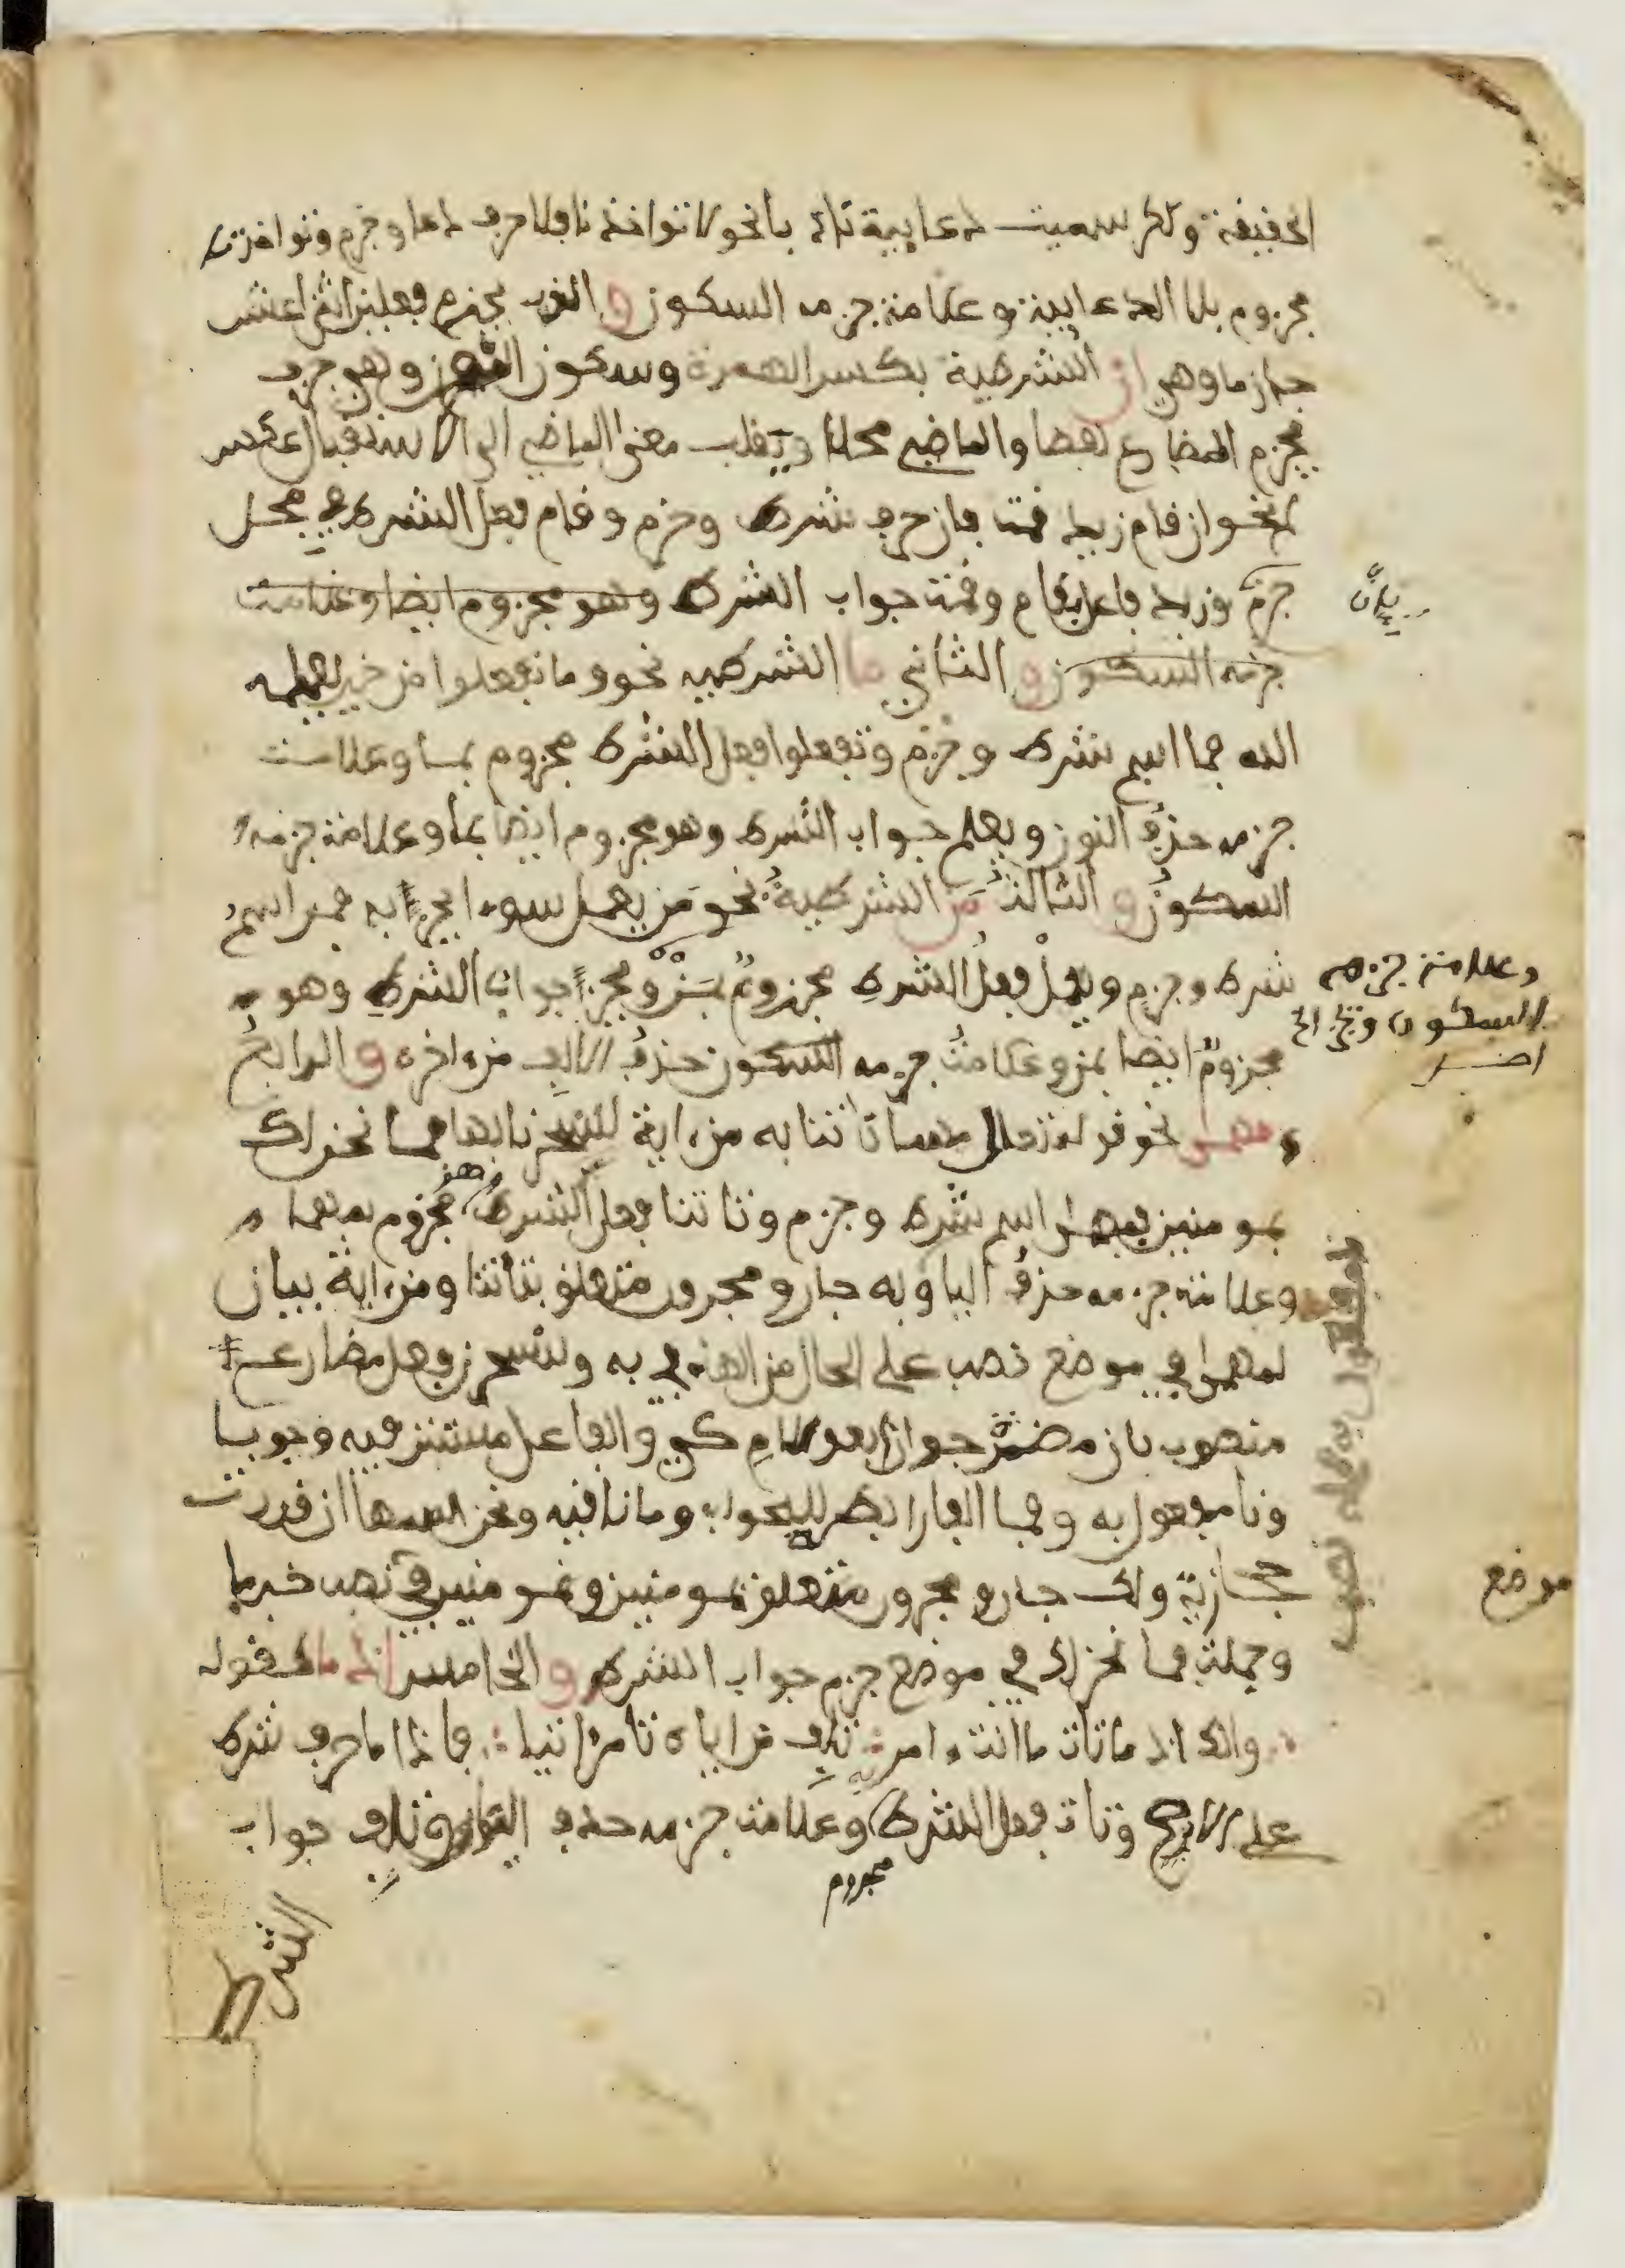 الحقيقة ولكن سميت دعايية تادبا نحو لا تواخذنا فلا حرف دعا وجزم وتواخذنا
مجزوم بلا الدعايية وعلامة جزمه السكون والذي يجزم فعلين اثنى عشر
جازما وهي ان الشرطية بكسر الهمزة وسكون النون وهي حرف
يجزم المضارع لفظا والماضي محلا ويقلب معنى الماضي الى الاستقبال عكس
لم نحو ان قام زيد قمت فان حرف شرط وجزم وقام فعل الشرط في محل
جزم وزيد فاعل بقام وقمت جواب الشرط وهو مجزوم ايضا وعلامت
جزمه السكون والثاني ما الشرطيه نحو وما تفعلوا من خير يعلمه
الله فما اسم شرط وجزم وتفعلوا فعل الشرط مجزوم بما وعلامت
جزمه حذف النون ويعلم جواب الشرط وهو مجزوم ايضا بما وعلامة جزمه
السكون والثالث من الشرطية نحو من يعمل سوءا يجز به فمن اسم
شرط وجزم ويعمل فعل الشرط مجزوم بمن ويجز جواب الشرط وهو
وعلامة جزمه
السكون ويجز الخ
مجزوم ايضا بمن وعلامت جزمه السكون حذف الالف من ءاخره والرابع
مهما نحو قوله تعالى مهما تاتنا به من ءاية لتسحرنا بها فما نحن لك
بمومنين فمهما اسم شرط وجزم وتاتنا فعل الشرط وهو مجزوم بمهما
وعلامة جزمه حذف اليا وبه جار ومجرور متعلق بتاتنا ومن ءاية بيان
لمهما في موضع نصب على الحال من الهاء في به ولتسحرن فعل مضارع
منصوب بان مضمر جوازا بعد لام كي والفاعل مستتر فيه وجوبا
ونا مفعول به وفما الفا رابط للجواب وما نافيه ونحن اسمها ان قدرت
حجازية ولك جار ومجرور متعلق بمومنين وبمومنين في نصب خبر ما
موضع
وجملة فما نحن لك في موضع جزم جواب الشرط والخامس اذ ما كقوله
وانك اذ ما تات ما انت ءامر به تلف من اياه تامر ءاتيا فاذ ما حرف شرط
على الاصح وتات فعل الشرط وعلامت جزمه حذف وتلف جواب
مجزوم
الشرط